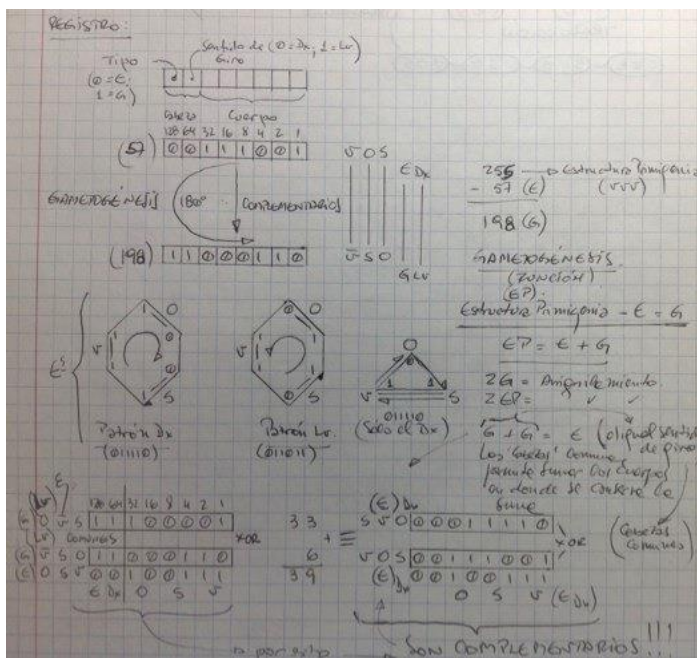 REGISTRO:
Tipo
(0 = E;
1 = G)
Sentido de (0 = Dx; 1 = Lv)
Giro
Cuerpo
128 64 32 16 8 4 2 1
(57) 0 0 1 1 1 0 0 1
GAMETOGÉNESIS
180º
COMPLEMENTARIOS
(198) 1 1 0 0 0 1 1 0
V O S
E Dx
V S O
G LV
255 → Estructura Primigenia
- 57 (E) (VVV)
198 (G)
GAMETOGÉNESIS
(FUNCIÓN)
(EP).
Estructura Primigenia - E = G
EP = E + G
2G = Aniquilamiento.
2EP =
G + G = E (al igual sentido
de giro)
Los "cabezas" comunes
permite sumar los cuerpos
en donde se conserva la
suma
(Cabezas
comunes)
O
V
S
Patrón Dx
(011110)
O
V
S
Patrón Lv.
(011011)
O
V
S
011110
(Solo el Dx)
128 64 32 16 8 4 2 1
(G) O V S 1 1 1 0 0 0 0 1
COMUNES
XOR
(G) V S O 1 1 0 0 0 1 1 0
(E) O S V 0 0 1 0 0 1 1 1
E Dx O S V
33
+
6
39
≡
(E) Dx
S V O 0 0 0 1 1 1 1 0
XOR
V O S 0 0 1 1 1 0 0 1
(E) Dx 0 0 1 0 0 1 1 1
O S V (E Dx)
por esto
SON COMPLEMENTARIOS!!!